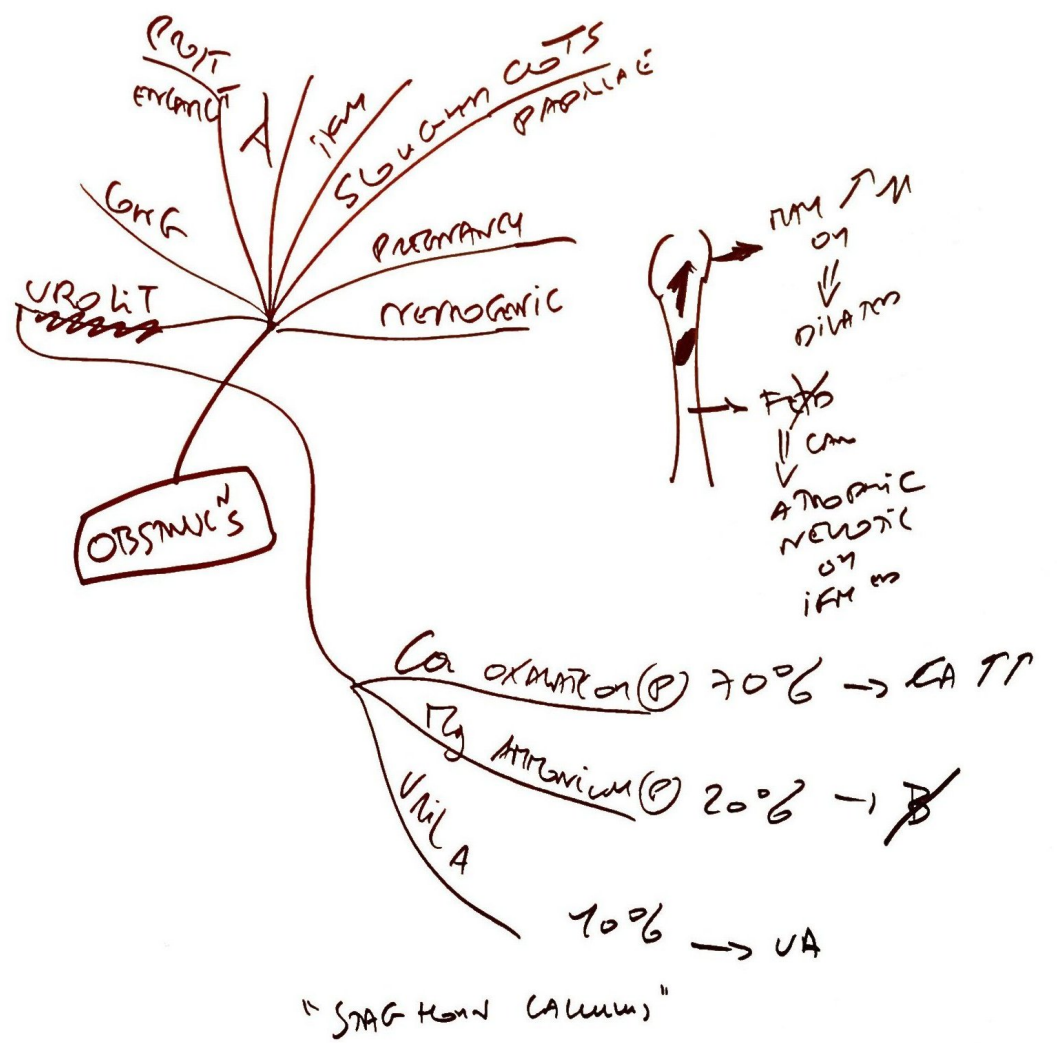 PROST
ENLARGT
CONG
INFM
SLOUGHN CLOTS
PAPILLAE
PREGNANCY
NEUROGENIC
UROLIT
OBSTRUC'N'S
MAY ↑ N
OR
⇓
DILATED
⇓ CAN
ATROPHIC
NECROTIC
OR
INFM ED
Ca OXALATE OR (P) 70% → CA ↑↑
Mg AMMONIUM (P) 20% → B
URIC A
10% → UA
"STAG HORN CALCULUS"